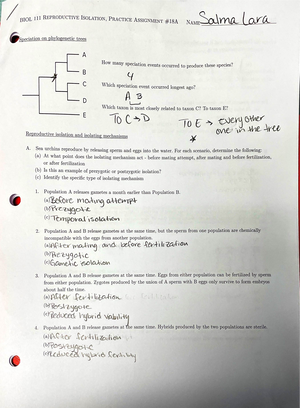 BIOL 111 REPRODUCTIVE ISOLATION, PRACTICE ASSIGNMENT #18A NAME Salma Lara
Speciation on phylogenetic trees
A
B
C
D
E
How many speciation events occurred to produce these species?
4
Which speciation event occurred longest ago?
A B
Which taxon is most closely related to taxon C? To taxon E?
TO C → D
TO E → every other
one in the tree
*
Reproductive isolation and isolating mechanisms
A. Sea urchins reproduce by releasing sperm and eggs into the water. For each scenario, determine the following:
(a) At what point does the isolating mechanism act - before mating attempt, after mating and before fertilization,
or after fertilization
(b) Is this an example of prezygotic or postzygotic isolation?
(c) Identify the specific type of isolating mechanism
1. Population A releases gametes a month earlier than Population B.
(a) Before mating attempt
(b) Prezygotic
(c) Temporal isolation
2. Population A and B release gametes at the same time, but the sperm from one population are chemically
incompatible with the eggs from another population.
(a) After mating and before fertilization
(b) Prezygotic
(c) Genetic isolation
3. Population A and B release gametes at the same time. Eggs from either population can be fertilized by sperm
from either population. Zygotes produced by the union of A sperm with B eggs only survive to form embryos
about half the time.
(a) After fertilization
(b) Postzygote
(c) Reduced hybrid viability
4. Population A and B release gametes at the same time. Hybrids produced by the two populations are sterile.
(a) After fertilization
(b) Postzygotic
(c) Reduced hybrid fertility